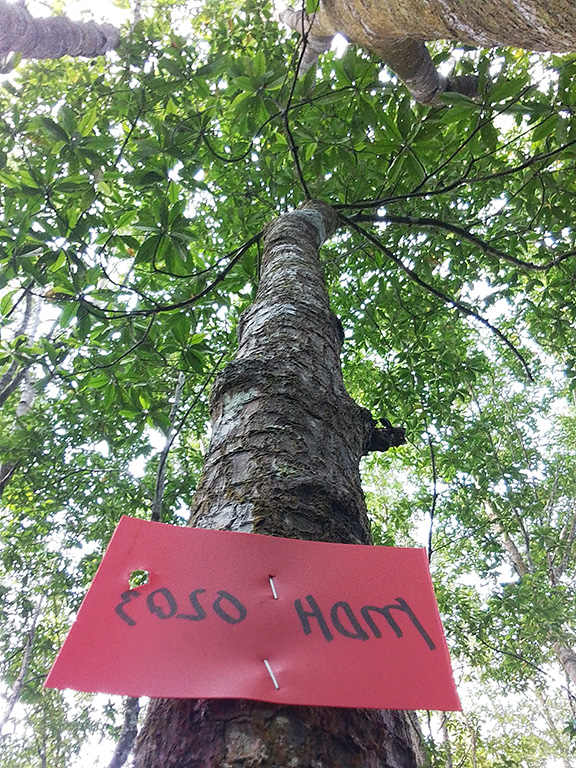 MDH 0203